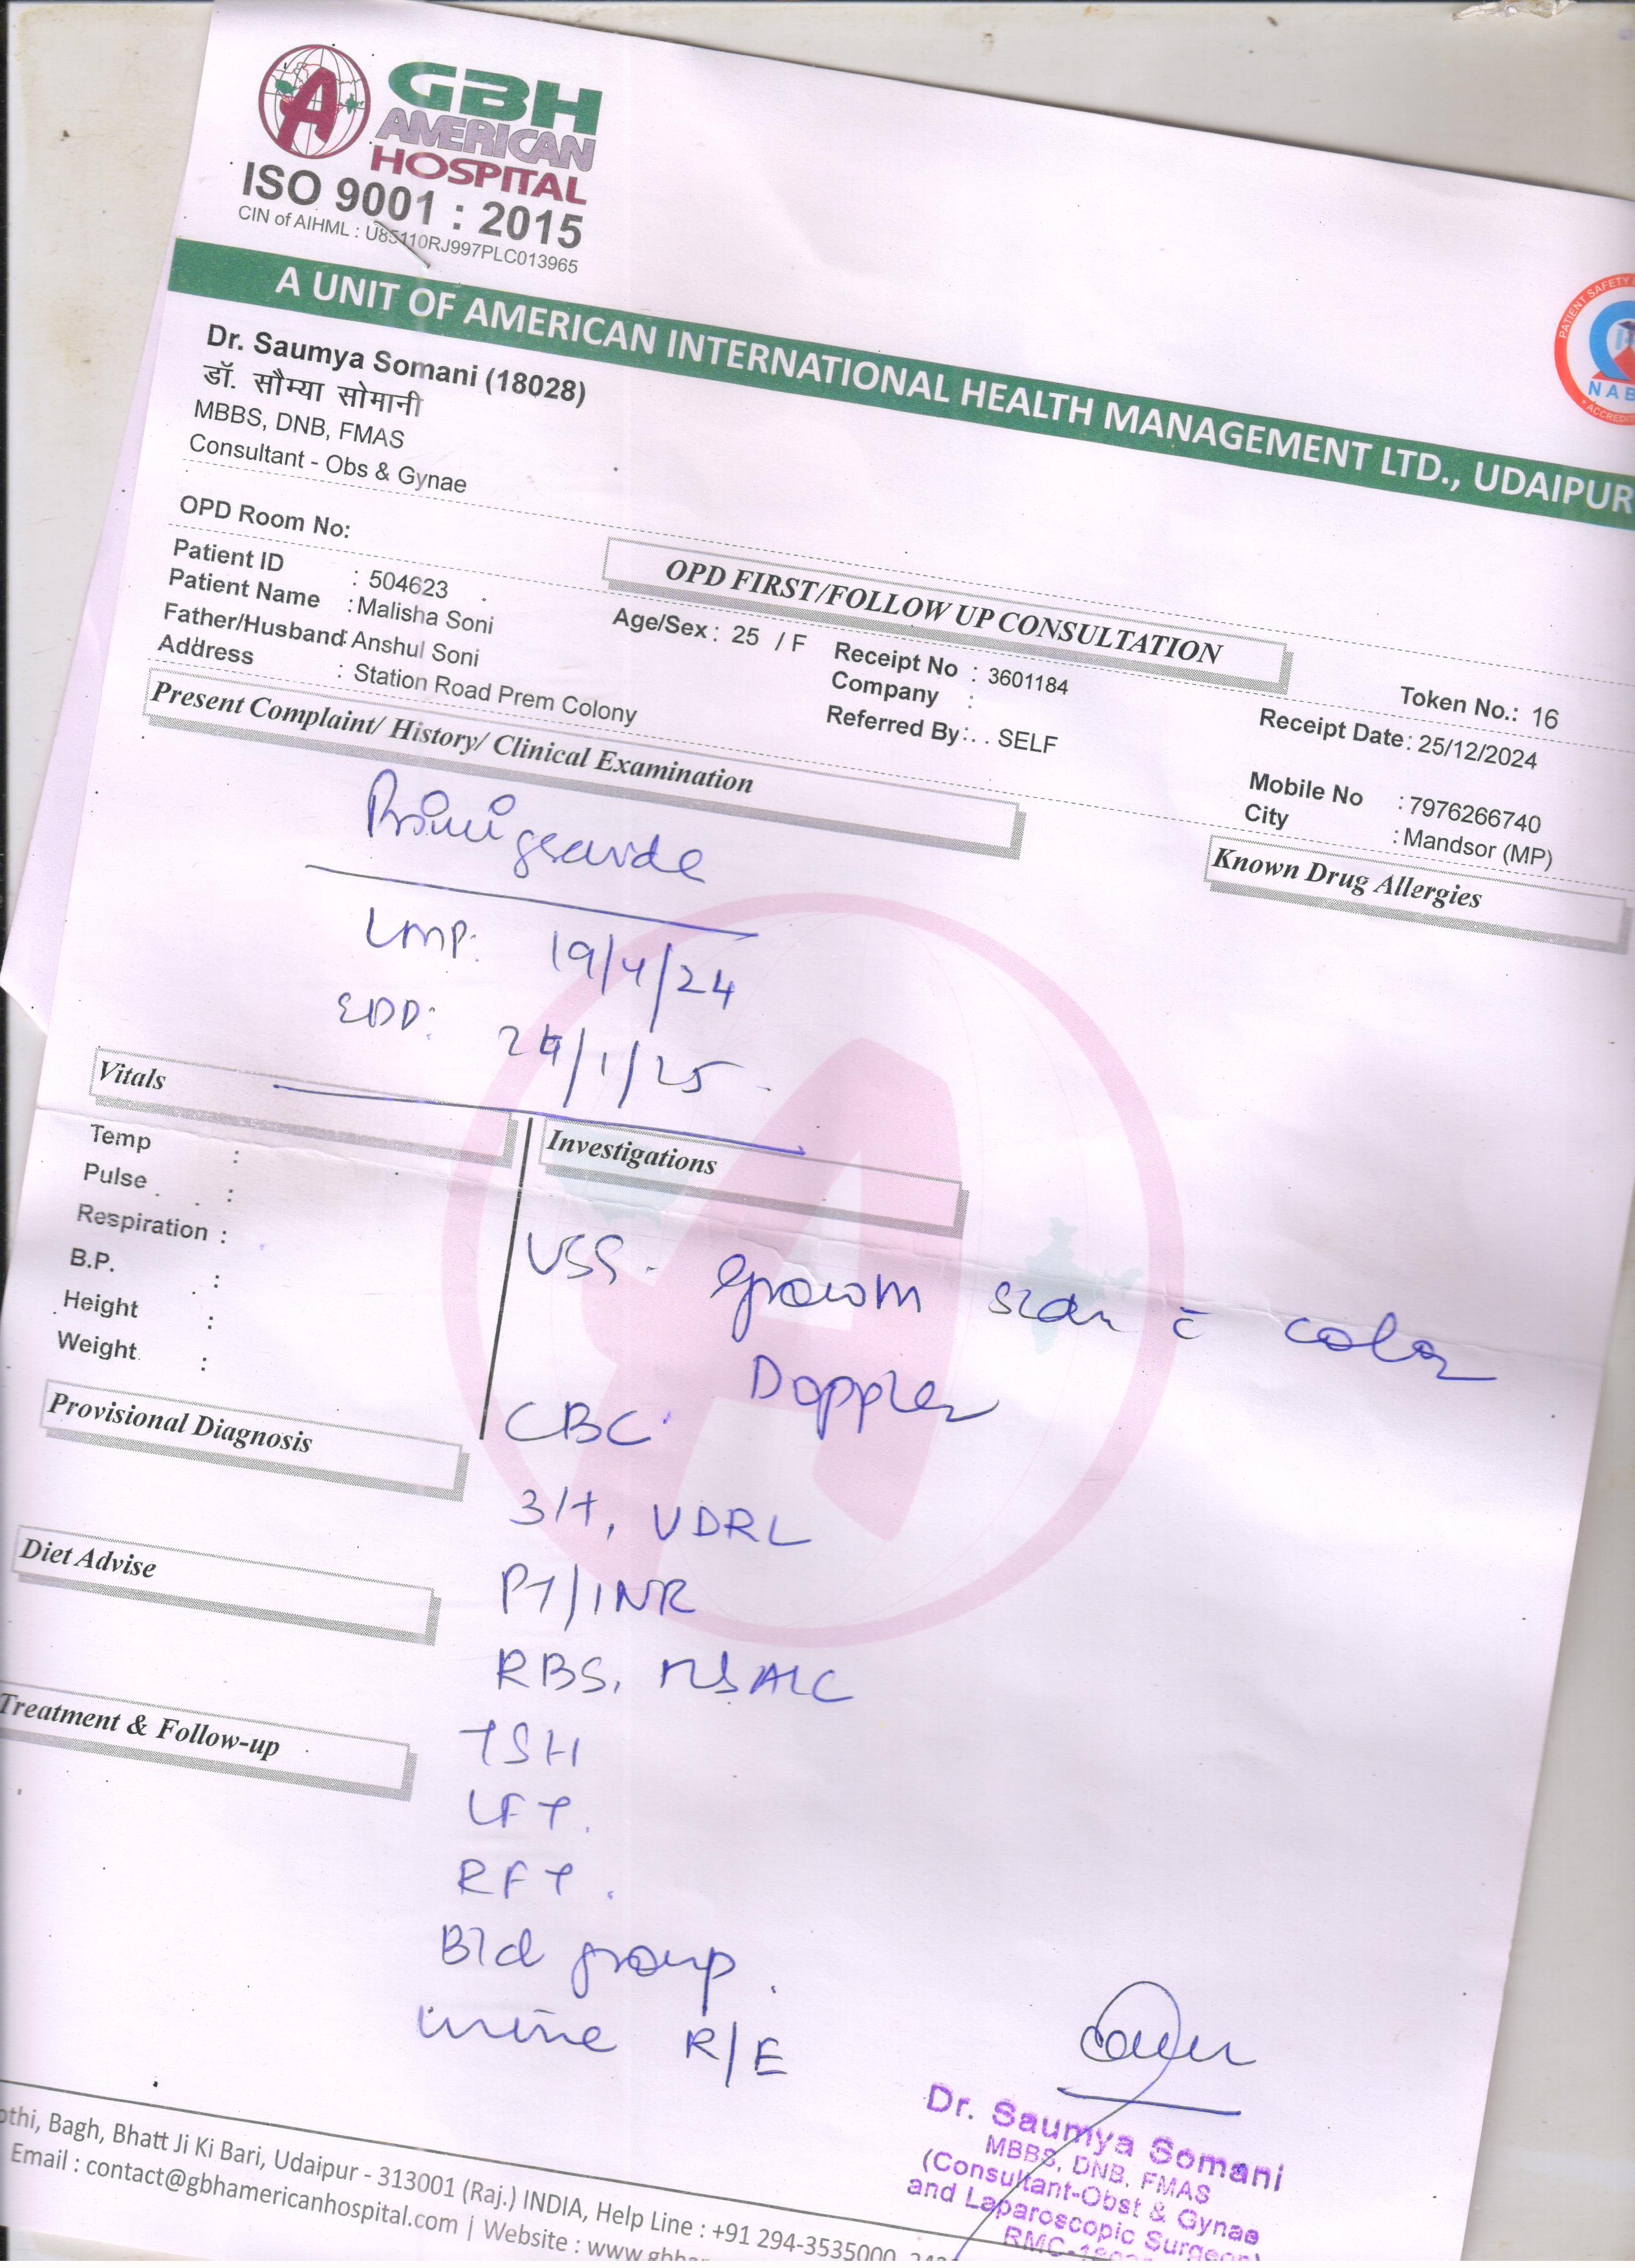 GBH
AMERICAN
HOSPITAL
ISO 9001 : 2015
CIN of AIHML : U85110RJ997PLC013965
A UNIT OF AMERICAN INTERNATIONAL HEALTH MANAGEMENT LTD., UDAIPUR
PATIENT SAFETY
NAB
ACCREDIT
Dr. Saumya Somani (18028)
डॉ. सौम्या सोमानी
MBBS, DNB, FMAS
Consultant - Obs & Gynae
OPD Room No:
OPD FIRST/FOLLOW UP CONSULTATION
Token No.: 16
Patient ID : 504623
Patient Name : Malisha Soni Age/Sex : 25 / F Receipt No : 3601184 Receipt Date : 25/12/2024
Father/Husband : Anshul Soni Company :
Address : Station Road Prem Colony Referred By : . . SELF Mobile No : 7976266740
City : Mandsor (MP)
Present Complaint/ History/ Clinical Examination
Known Drug Allergies
Primigravida
LMP: 19/4/24
EDD: 24/1/25
Vitals
Investigations
Temp :
Pulse :
Respiration :
B.P. :
Height :
Weight :
USG. growth scan c̄ color
Doppler
CBC
Provisional Diagnosis
3/H, VDRL
Diet Advise
PT/INR
RBS, HbA1C
Treatment & Follow-up
TSH
LFT.
RFT.
Bld group.
urine R/E
Dr. Saumya Somani
MBBS, DNB, FMAS
(Consultant-Obst & Gynae
and Laparoscopic Surgeon)
RMC-
othi, Bagh, Bhatt Ji Ki Bari, Udaipur - 313001 (Raj.) INDIA, Help Line : +91 294-3535000
Email : contact@gbhamericanhospital.com | Website : www.gbh